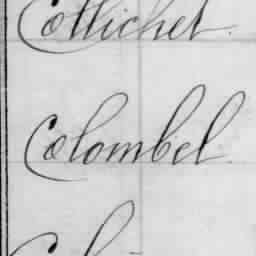 Collichet.
Colombel.